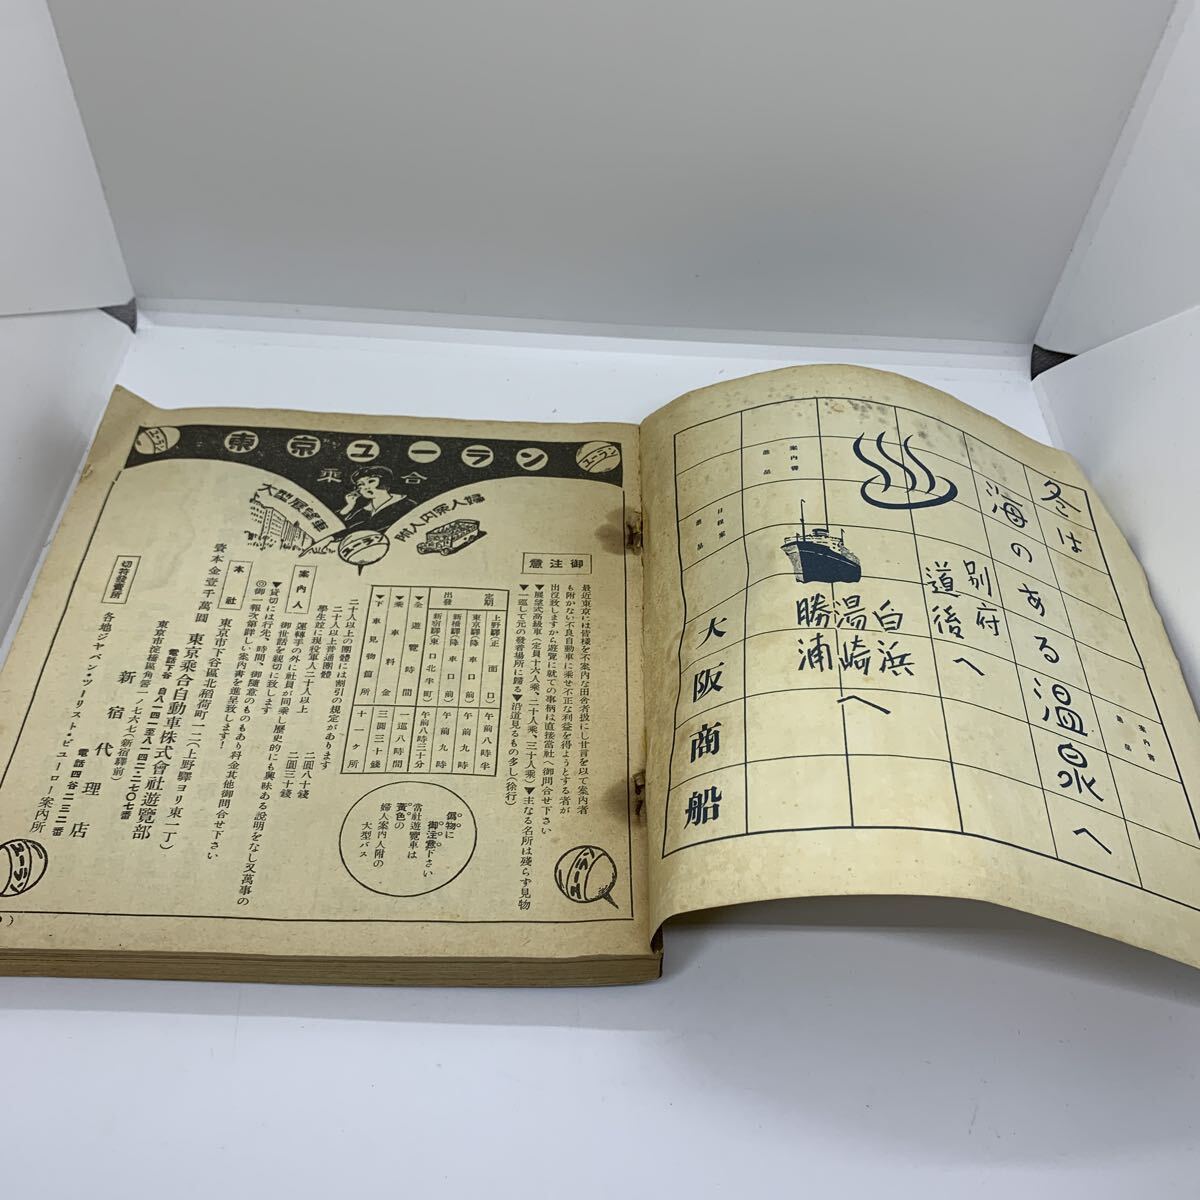 冬は
海のある温泉へ
別府
道後へ
白浜
湯崎
勝浦へ
大阪商船
案内書
進品
日程案
進品
案内書
進品
東京ユーラン
乗合
大型展望車
婦人案内人附
ユーラン
御注意
最近東京には皆様を不案内な田舎者扱にし甘言を以て案内者
も附かない不良自動車に乗せ不正な利益を得ようとする者が
出沒致しますから遊覽に就ての事柄は直接當社へ御問合せ下さい
▼展望式高級車(定員十六人乘、二十人乘、三十人乘)▼主なる名所は殘らず見物
▼一巡して元の發着場所に歸る▼沿道見るもの多し(徐行)
定期
出發
上野驛(正面口)
午前八時半
東京驛(降車口前)
午前九時
新橋驛(降車口前)
午前九時
新宿驛(東口北半町)
午前八時三十分
▼全遊覽時間
一巡八時間
▼乘車料金
三圓三十錢
▼下車見物箇所
十一ケ所
二十人以上の團體には割引の規定があります
二十人以上普通團體
二圓八十錢
學生竝に現役軍人二十人以上
二圓三十錢
案內人
運轉手の外に社員が同乘し歷史的にも興味ある說明をなし又萬事の
御世話を親切に致します
▼貸切には行先、時間、御隨意のものもあり料金其他御問合せ下さい
◎御一報次第詳しい案內書を進呈致します!
本社
東京市下谷區北稻荷町一二(上野驛ヨリ東一丁)
資本金壹千萬圓
東京乘合自動車株式會社遊覽部
電話下谷
東京市淀橋區角筈一ノ七六(新宿驛前)
新宿代理店
電話四谷二三二番
切符發賣所
各地ジャパン・ツーリスト・ビューロー案內所
僞物に
御注意下さい
當社遊覽車は
黃色の
婦人案內人附の
大型バス
ユーラン